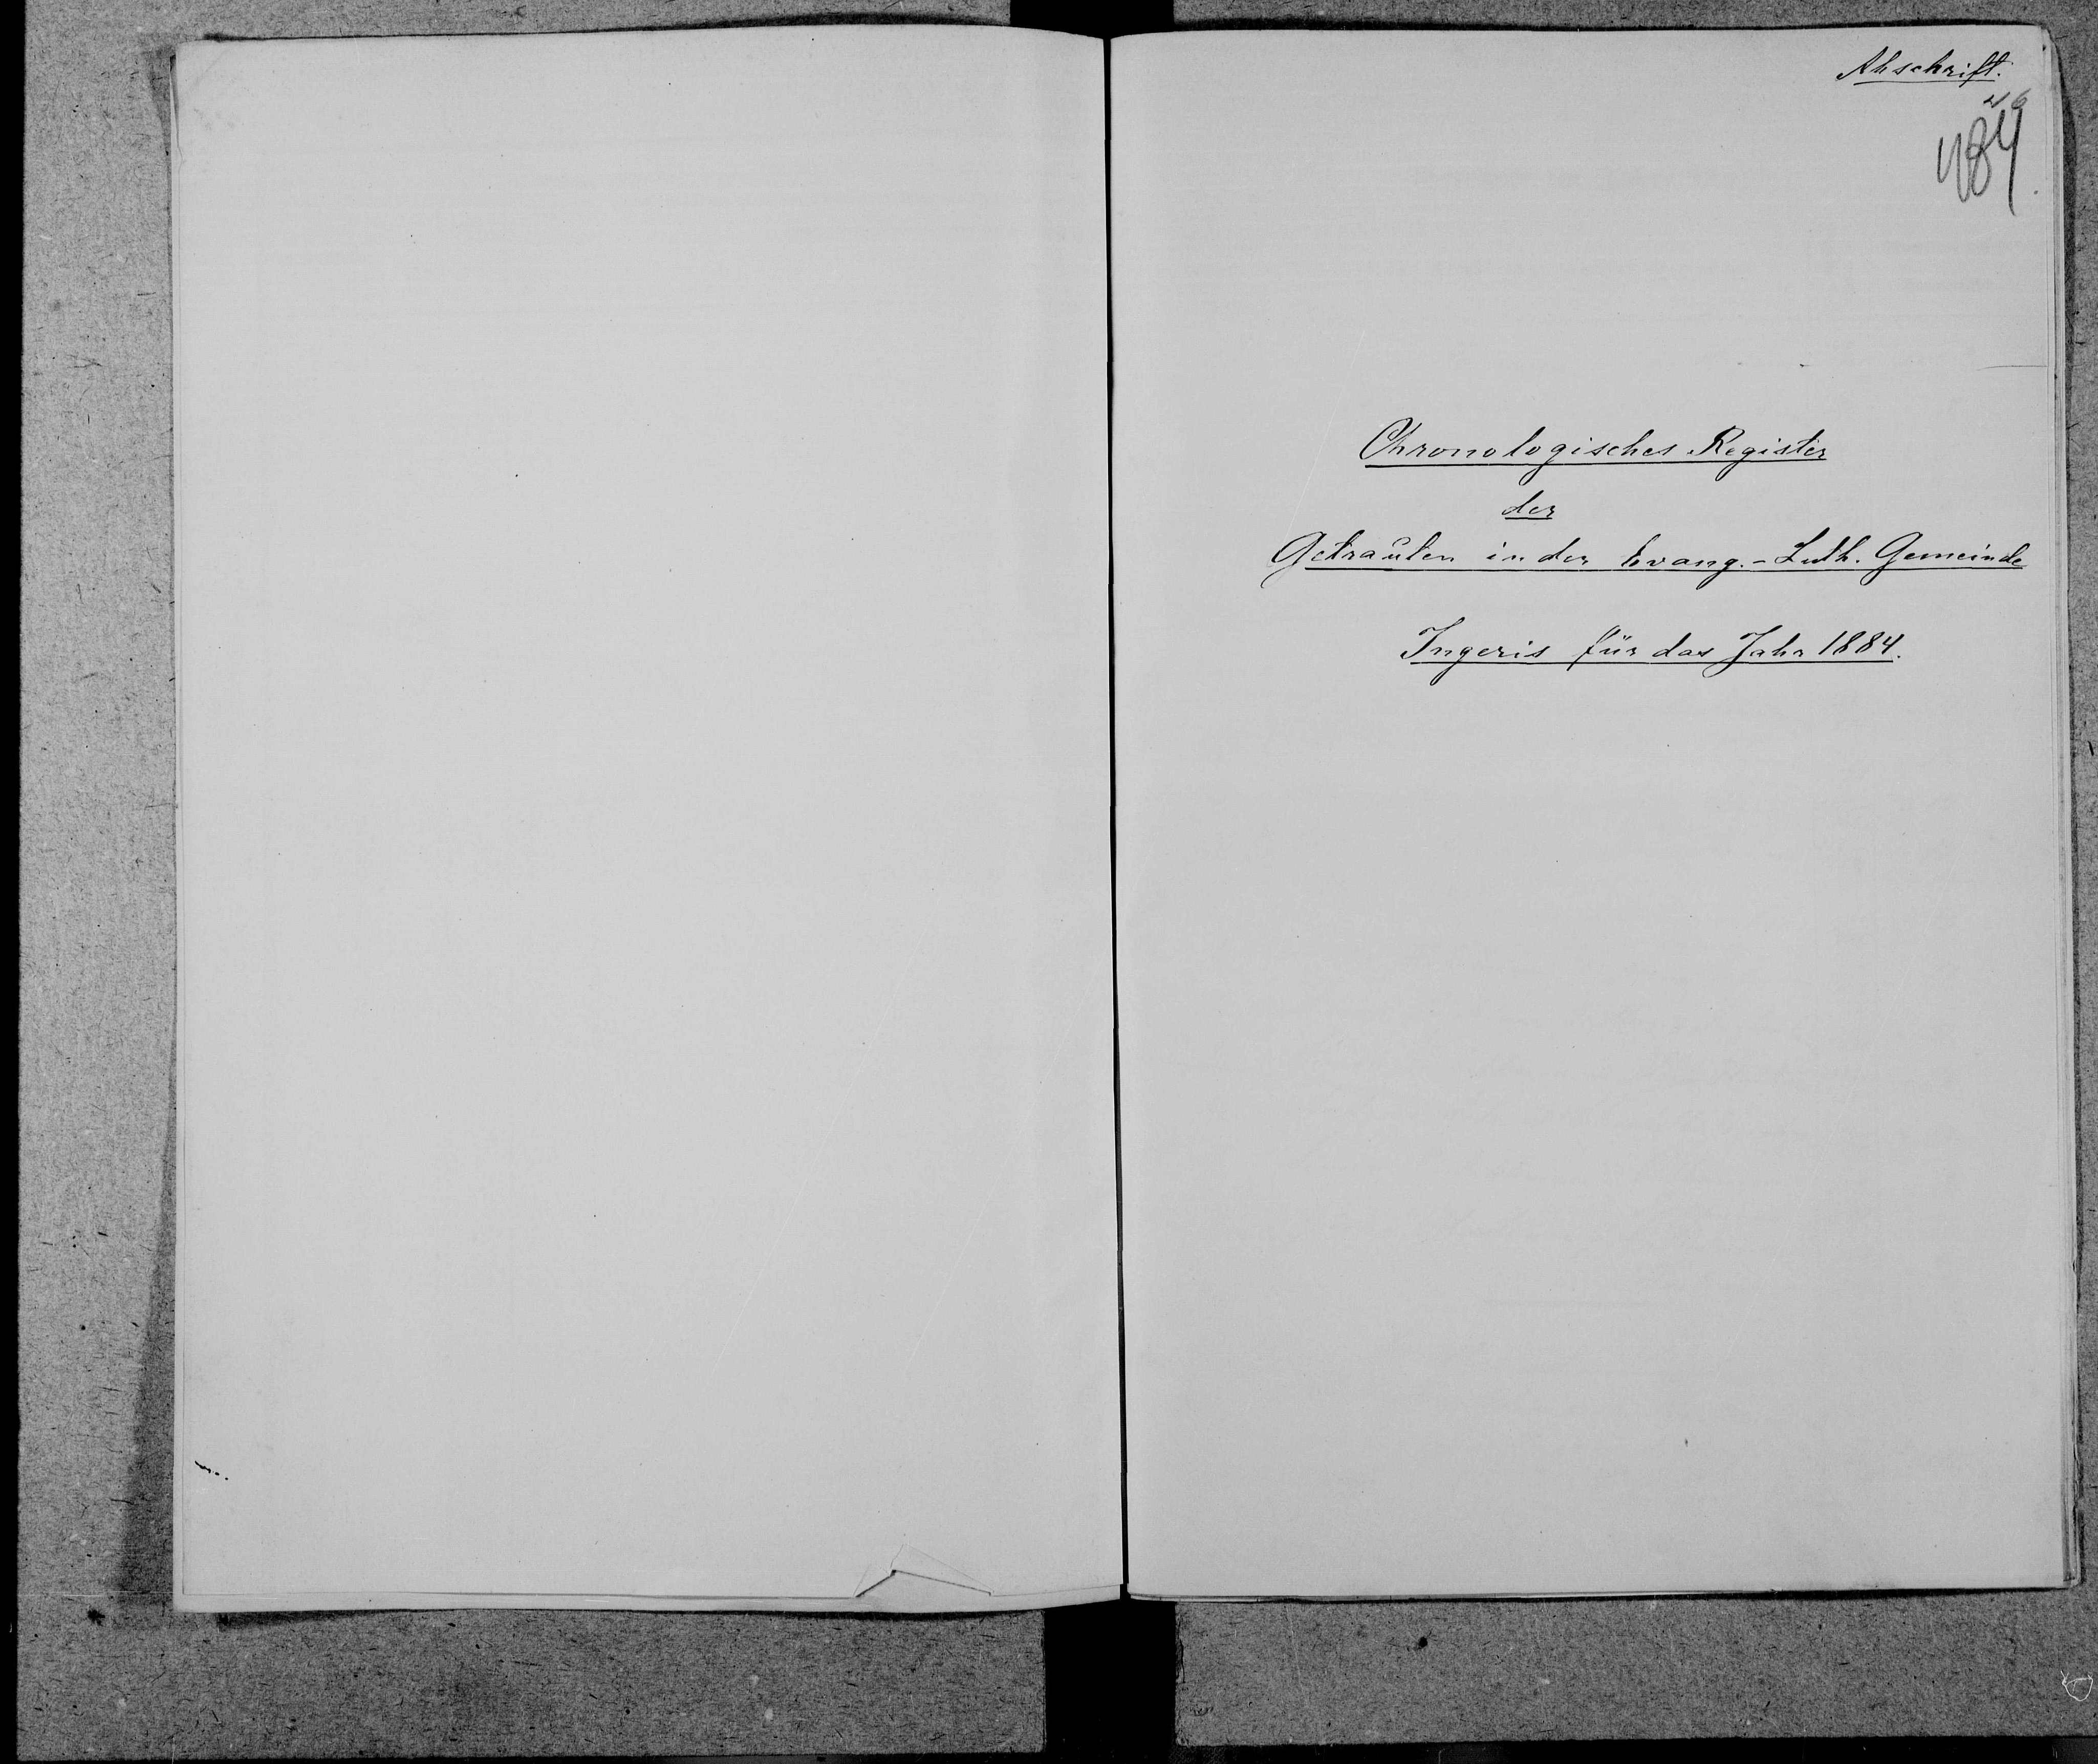 Abschrift.
484
Chronologisches Register
der
Getrauten in der Evang.-Luth. Gemeinde
Ingeris für das Jahr 1884.